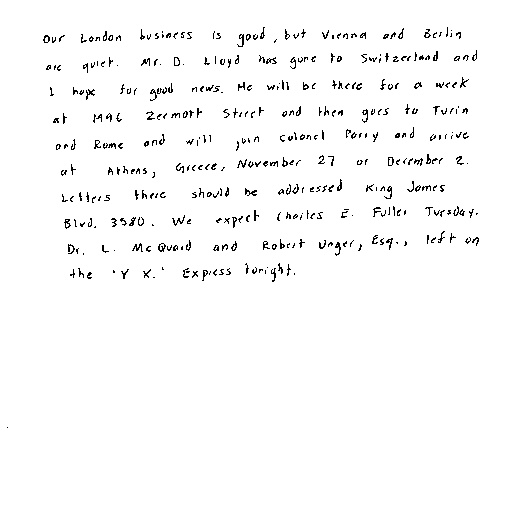 Our London business is good, but Vienna and Berlin
are quiet. Mr. D. Lloyd has gone to Switzerland and
I hope for good news. He will be there for a week
at 1496 Zermott Street and then goes to Turin
and Rome and will join Colonel Parry and arrive
at Athens, Greece, November 27 or December 2.
Letters there should be addressed King James
Blvd. 3580. We expect Charles E. Fuller Tuesday.
Dr. L. McQuaid and Robert Unger, Esq., left on
the 'Y X.' Express tonight.